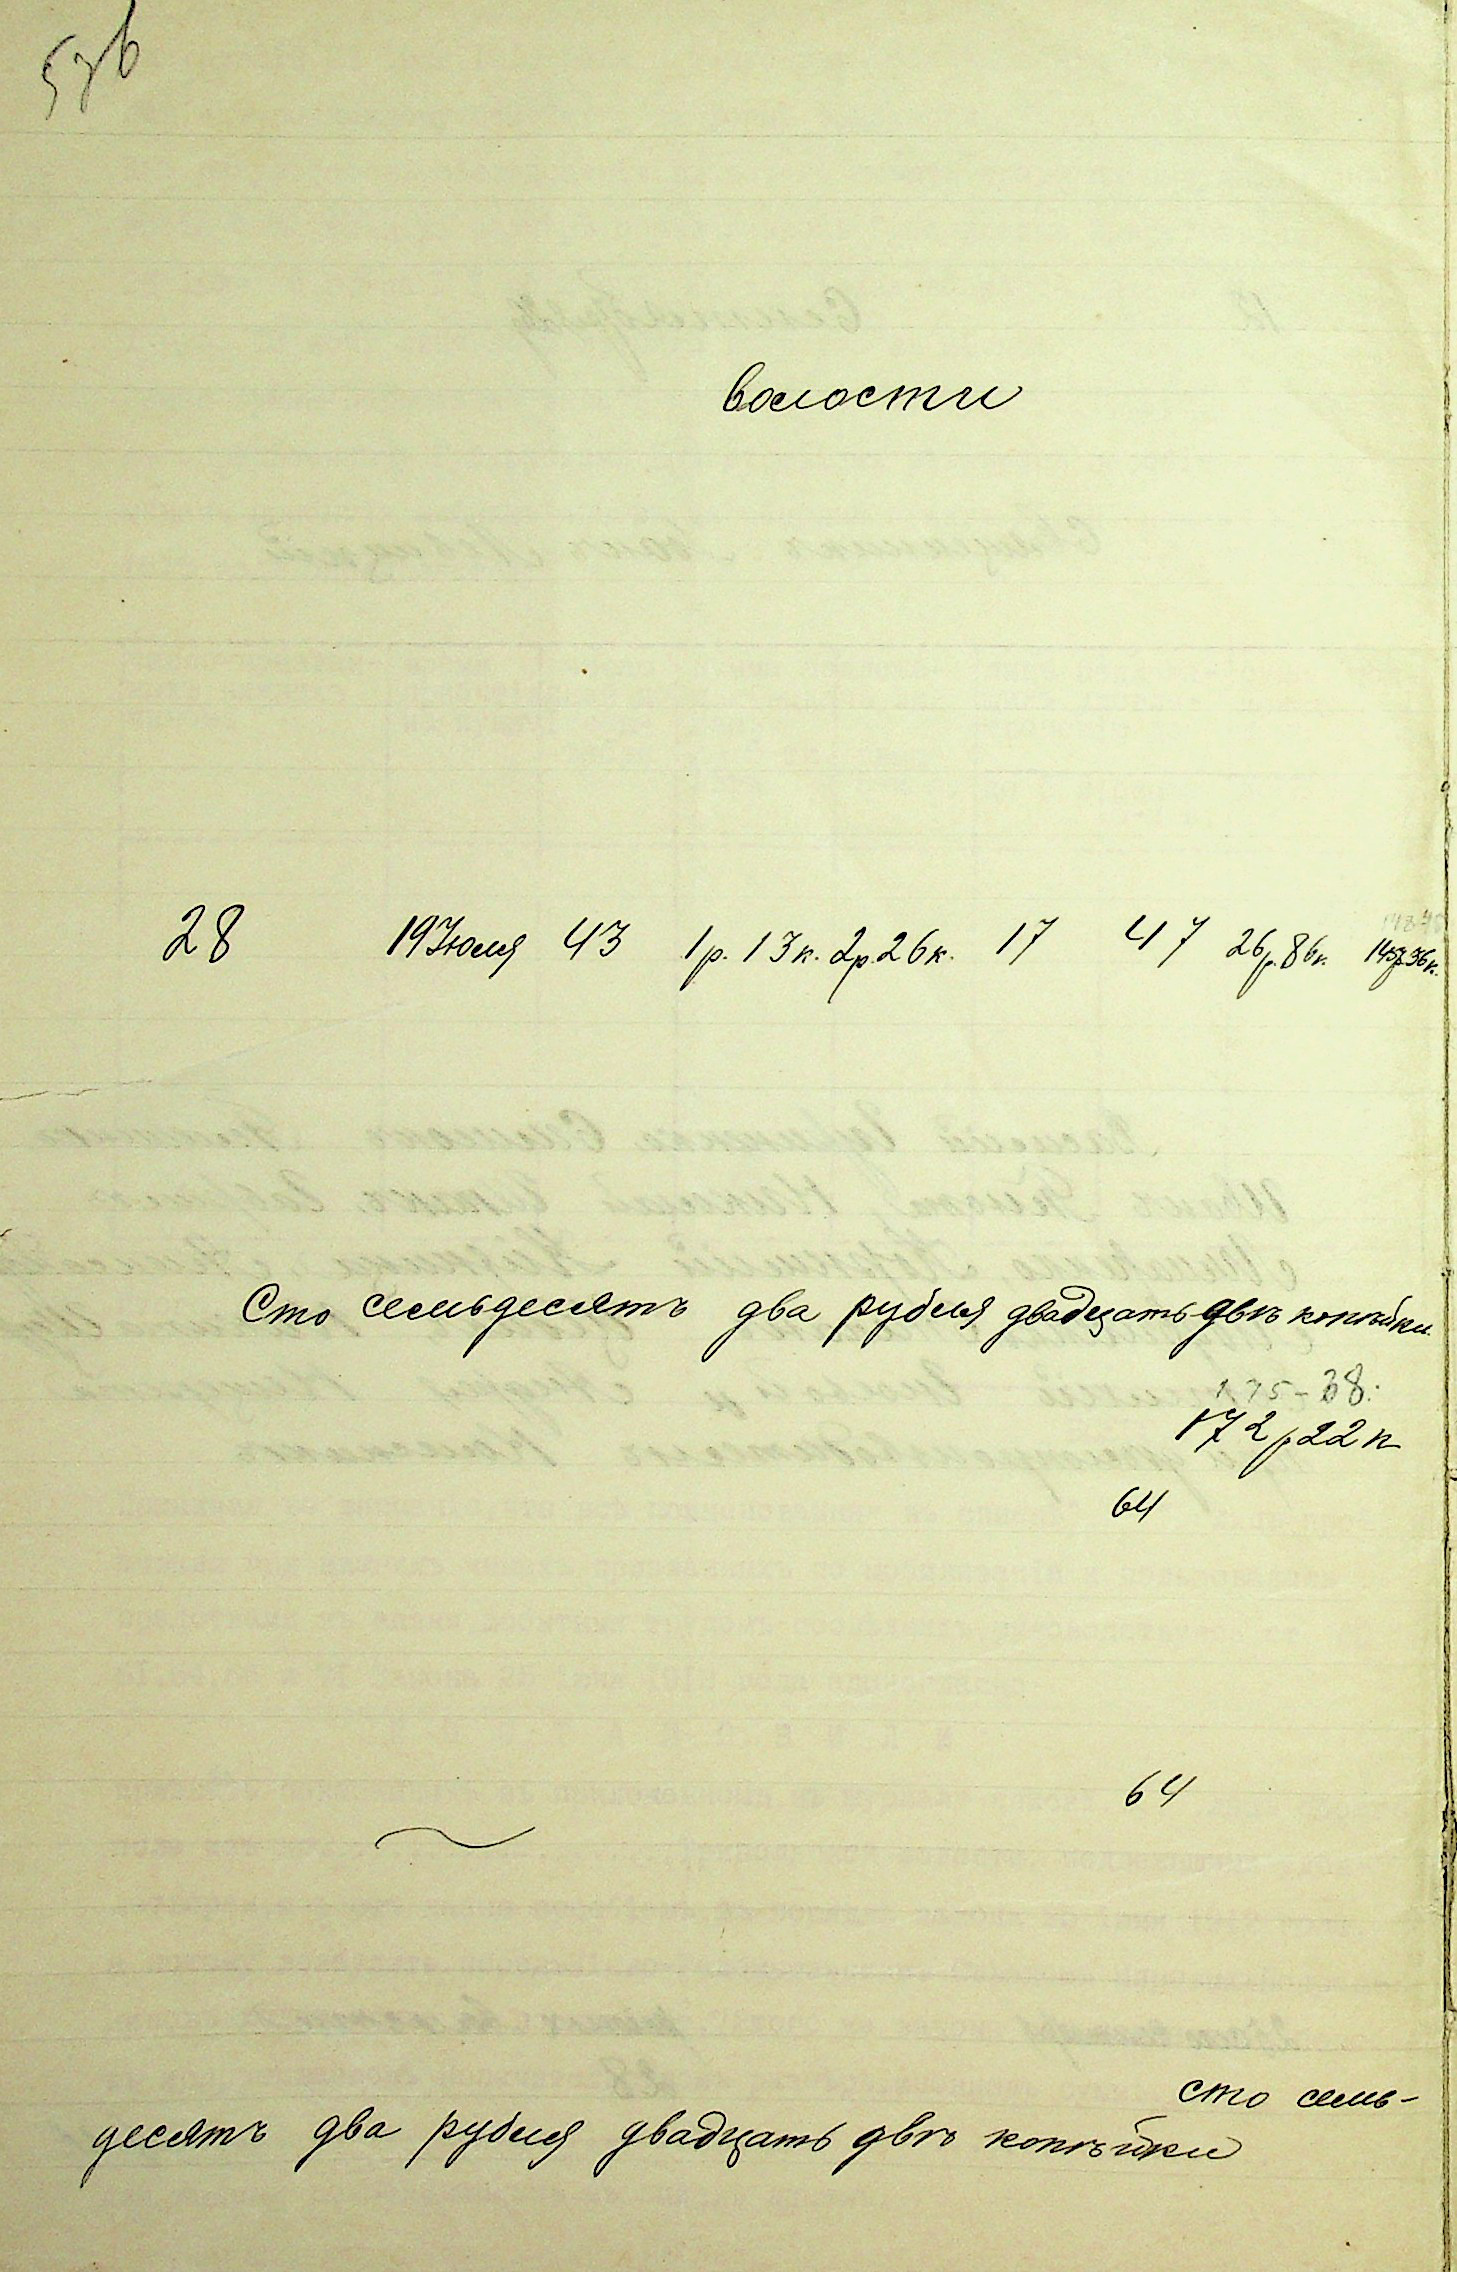 576
волости
28 19 Июля 43 1 р. 13 к. 2 р. 26 к. 17 47 26 р. 86 к. 36 к.
Сто семьдесятъ два рубля двадцать двѣ копѣйки
175-38.
172 р 22 к
64
64
сто семь-
десятъ два рубля двадцать двѣ копѣйки